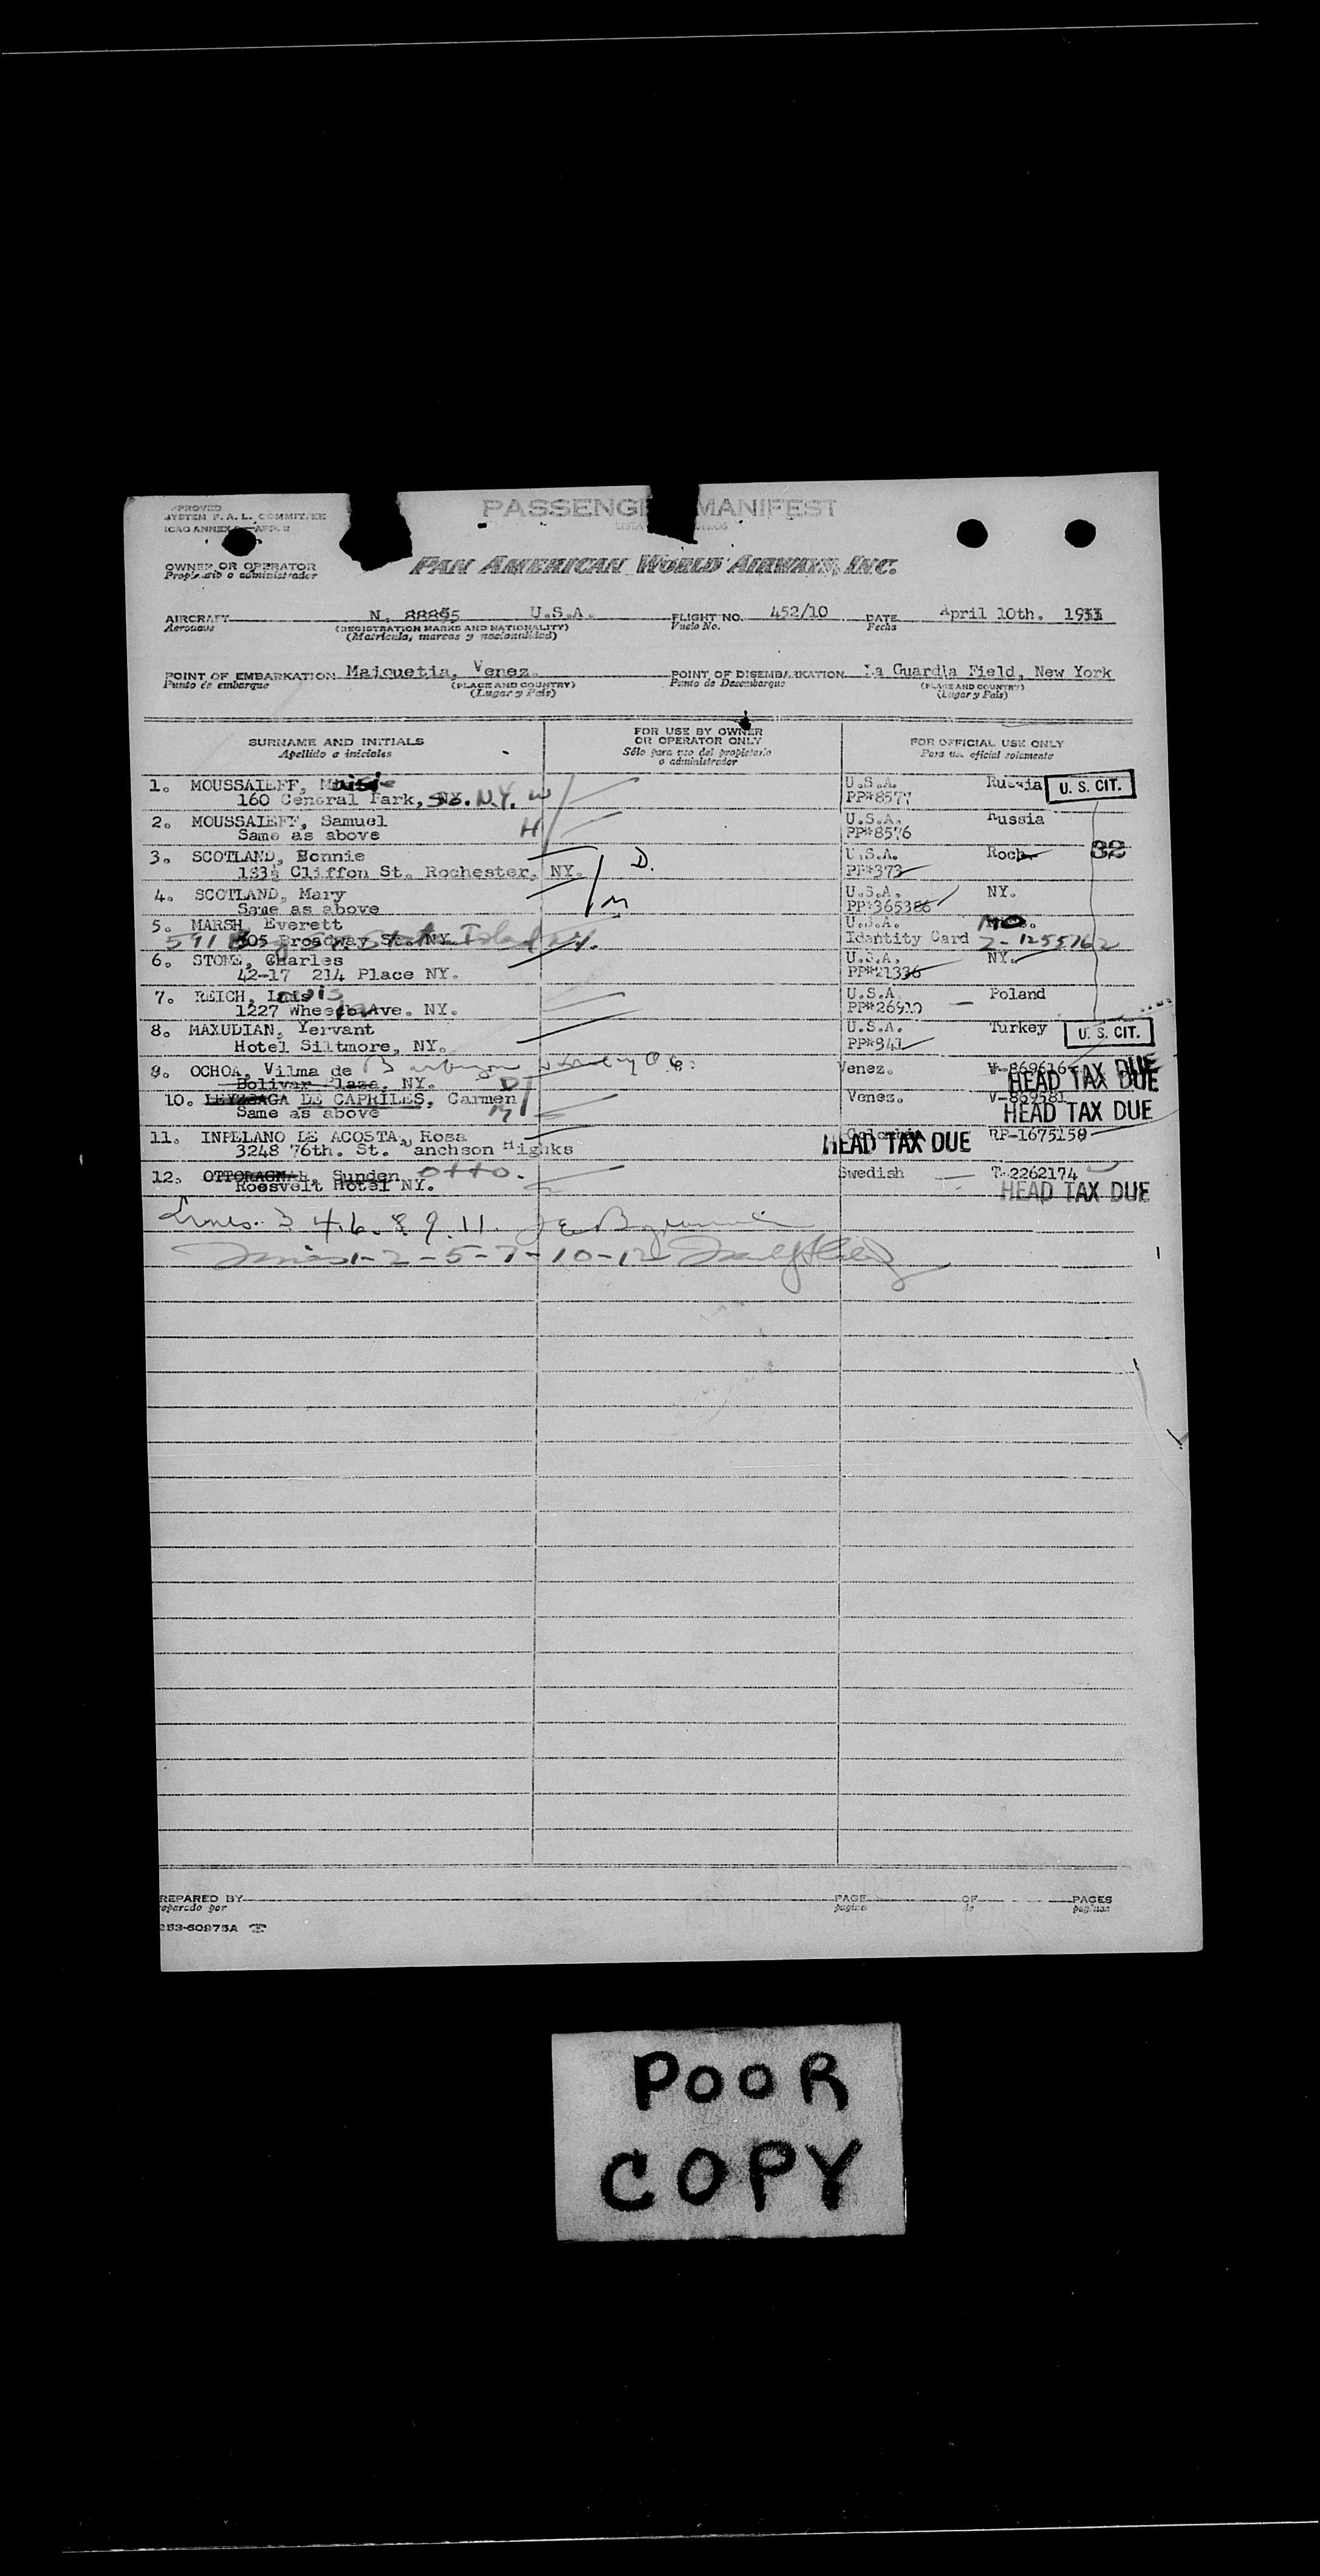 APPROVED
SYSTEM F.A.L. COMMITTEE
ICAO ANNEX
PASSENGER MANIFEST
OWNER OR OPERATOR
Propietario o administrador
PAN AMERICAN WORLD AIRWAYS, INC.
AIRCRAFT N. 88855 U.S.A. FLIGHT NO. 452/10 DATE April 10th.
Aeronave (REGISTRATION MARKS AND NATIONALITY) Vuelo No. Fecha
(Matrícula, marcas y nacionalidad)
POINT OF EMBARKATION Maiquetia, Venez. POINT OF DISEMBARKATION La Guardia Field, New York
Punto de embarque (PLACE AND COUNTRY) Punto de Desembarque (PLACE AND COUNTRY)
(Lugar y País) (Lugar y País)
SURNAME AND INITIALS FOR USE BY OWNER OR OPERATOR ONLY FOR OFFICIAL USE ONLY
Apellido e iniciales Sólo para uso del propietario o administrador Para uso oficial solamente
1. MOUSSAIEFF, U.S.A. Russia U. S. CIT.
160 Central Park, So. N.Y. W PP#8577
2. MOUSSAIEFF, Samuel U.S.A. Russia
Same as above H PP#8576
3. SCOTLAND, Bonnie D. U.S.A. Roch 32
133½ Cliffon St. Rochester, NY. PP#373
4. SCOTLAND, Mary U.S.A. NY.
Same as above M PP#365386
5. MARSH, Everett U.S.A. MO.
591 Broadway St. NY. Identity Card Z-1255762
6. STONE, Charles U.S.A. NY.
42-17 214 Place NY. PP#21336
7. REICH, Louis U.S.A. Poland
1227 Ave. NY. PP#26920
8. MAXUDIAN, Yervant U.S.A. Turkey U. S. CIT.
Hotel Siltmore, NY. PP#941
9. OCHOA, Vilma de Venez. V-869616 HEAD TAX DUE
Bolivar Plaza, NY. D HEAD TAX DUE
10. DE CAPRILES, Carmen Venez. V-869581
Same as above M HEAD TAX DUE
11. INFELANO DE ACOSTA, Rosa Colombia RP-1675158
3248 76th. St. Janchson Highks HEAD TAX DUE
12. Sunden Otto. Swedish T-2262174
Roosvelt Hotel NY. HEAD TAX DUE
Lines. 3 4.6. 8. 9. 11.
Lines 1-2-5-7-10-12
PREPARED BY PAGE OF PAGES
Preparado por pagina de paginas
253-60975A
POOR
COPY